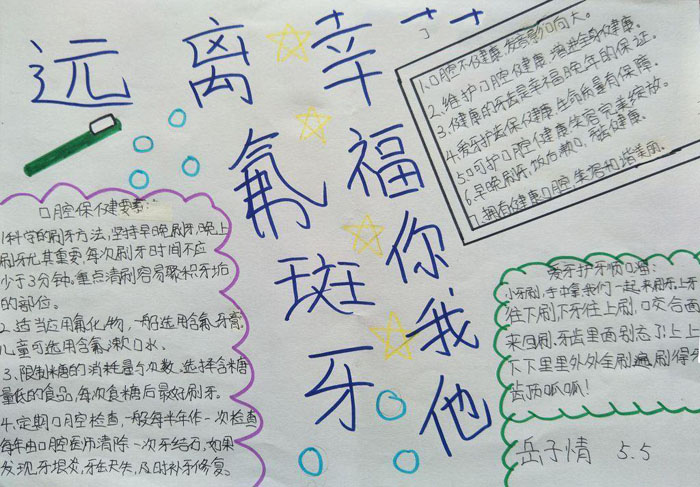 远离氟斑牙
幸福你我他
1.口腔不健康,发育影响大。
2.维护口腔健康,增进全身健康。
3.健康的牙齿是幸福晚年的保证。
4.爱牙护齿保健康,生命质量有保障。
5.呵护口腔健康,笑容完美绽放。
6.早晚刷牙,饭后漱口,健康。
7.拥有健康口腔,生活和谐美丽。
口腔保健要素:
1.科学的刷牙方法,坚持早晚刷牙,晚上
刷牙尤其重要,每次刷牙时间不应
少于3分钟,重点清刷容易聚积牙垢
的部位。
2.适当应用氟化物,一般选用含氟牙膏,
儿童可选用含氟漱口水。
3、限制糖的消耗量与次数,选择含糖
量低的食品,每次食糖后最好刷牙。
4.定期口腔检查,一般每半年作一次检查
每年由口腔医师清除一次牙结石,如果
发现牙龈炎,牙缺失,及时补牙修复。
爱牙护牙顺口溜:
小牙刷,手中拿,我们一起来刷牙,上牙
往下刷,下牙往上刷,咬合面
来回刷,牙齿里面别忘了,上上
下下里里外外全刷遍,刷得牙
齿历呱呱!
岳子情 5.5